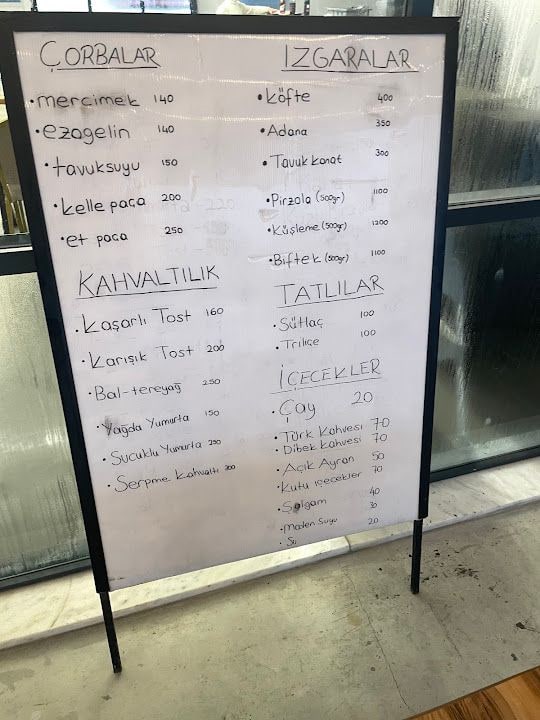 ÇORBALAR
• mercimek 140
• ezogelin 140
• tavuksuyu 150
• kelle paça 200
• et paça 250
KAHVALTILIK
• Kaşarlı Tost 160
• Karışık Tost 200
• Bal-tereyağ 250
• Yağda Yumurta 150
• Sucuklu Yumurta 250
• Serpme Kahvaltı 300
IZGARALAR
• Köfte 400
• Adana 350
• Tavuk kanat 300
• Pirzola (500gr) 1100
• Küşleme (500gr) 1200
• Biftek (500gr) 1100
TATLILAR
• Sütlaç 100
• Triliçe 100
İÇECEKLER
• Çay 20
• Türk Kahvesi 70
• Dibek kahvesi 70
• Açık Ayran 50
• Kutu içecekler 70
• Şalgam 40
• Maden Suyu 30
• Su 20